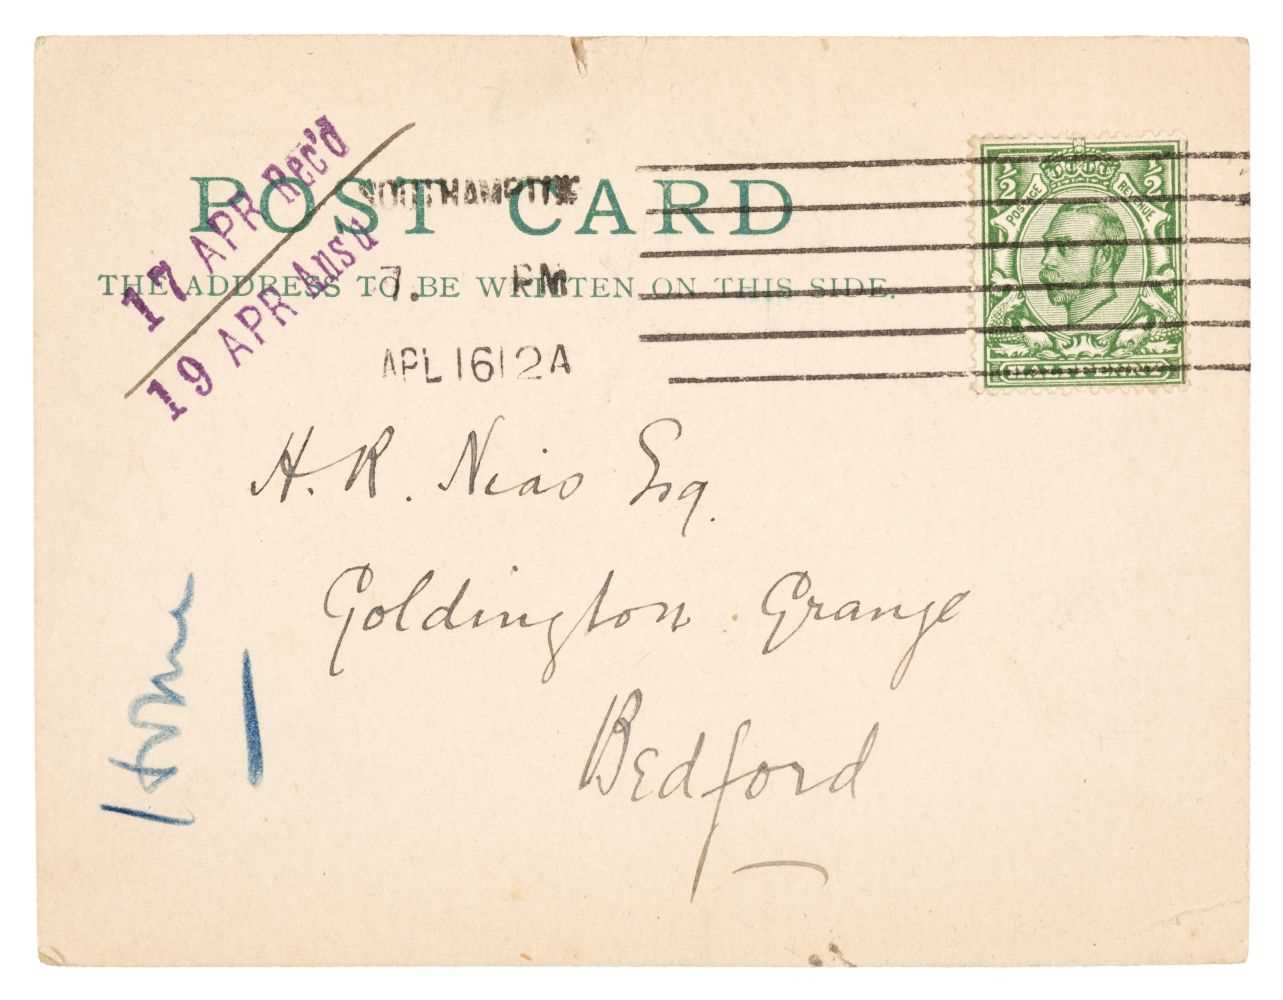 POST CARD
THE ADDRESS TO BE WRITTEN ON THIS SIDE.
17 APR Rec'd
19 APR Ans'd
SOUTHAMPTON
7. PM
APL 16 12 A
½ ½
POSTAGE REVENUE
HALFPENNY
H. R. Nias Esq.
Goldington Grange
Bedford
Home